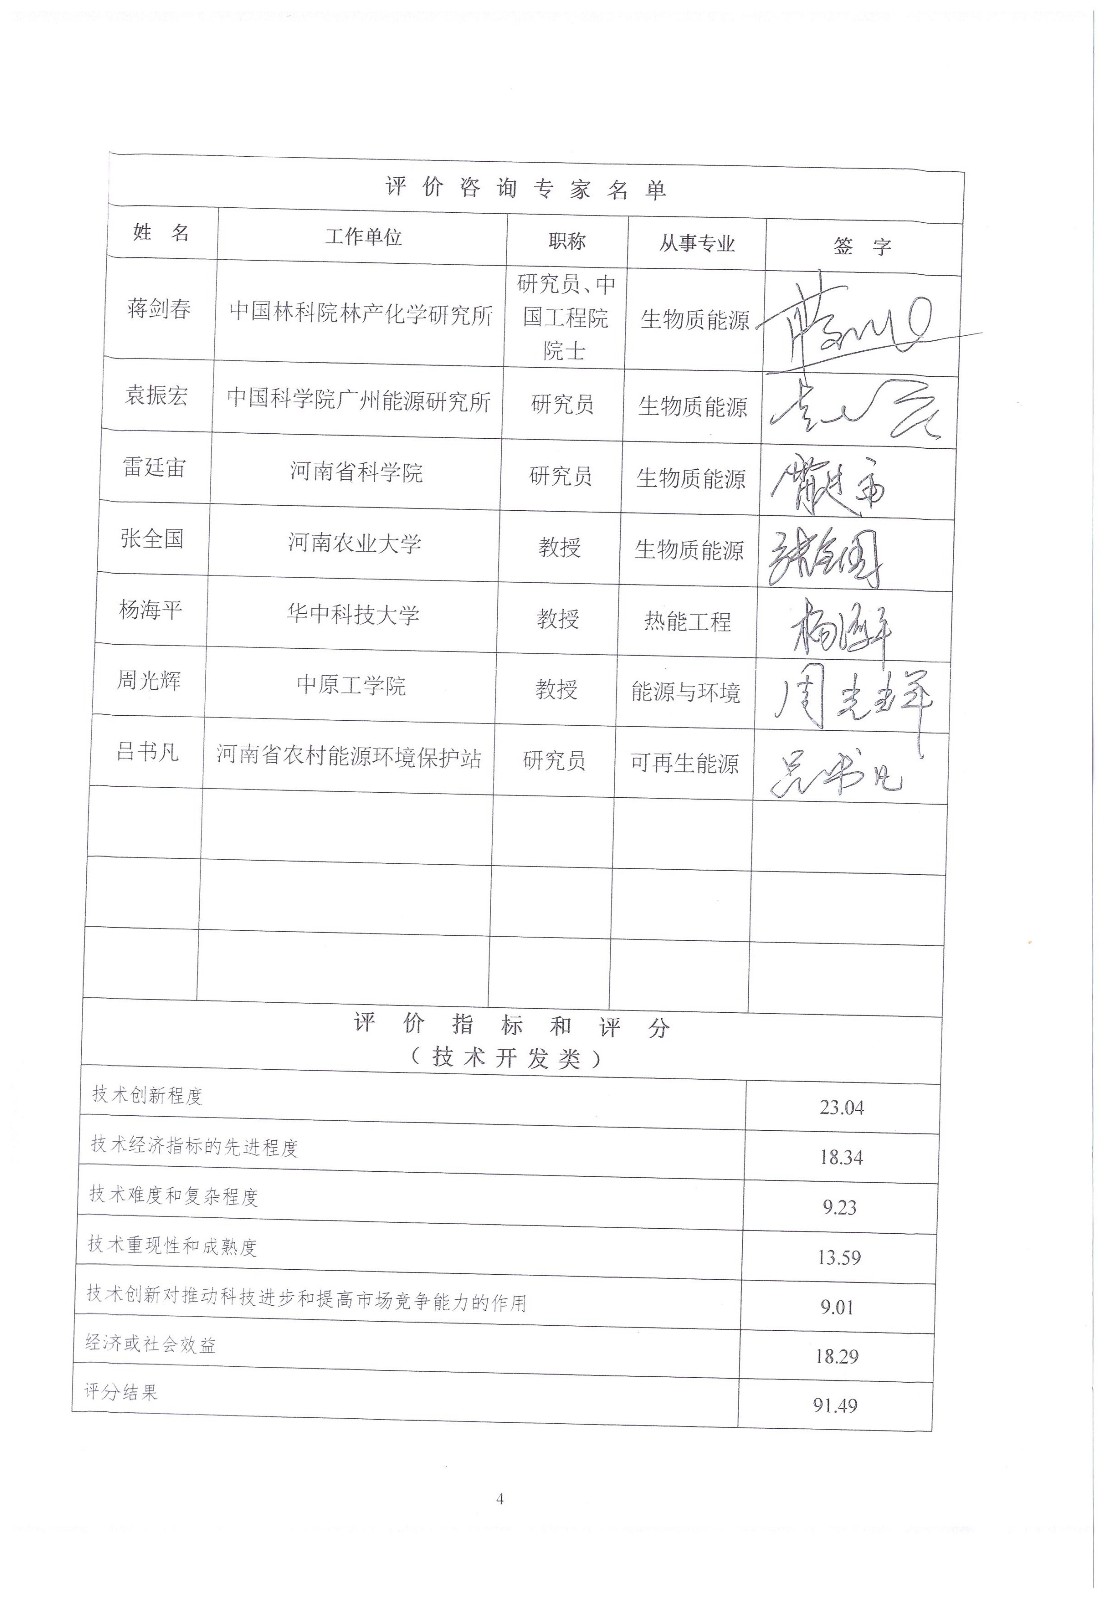 评价咨询专家名单
姓 名 工作单位 职称 从事专业 签 字
研究员、中
蒋剑春 中国林科院林产化学研究所 国工程院 生物质能源
院士
袁振宏 中国科学院广州能源研究所 研究员 生物质能源
雷廷宙 河南省科学院 研究员 生物质能源 雷廷宙
张全国 河南农业大学 教授 生物质能源 张全国
杨海平 华中科技大学 教授 热能工程 杨海平
周光辉 中原工学院 教授 能源与环境 周光辉
吕书凡 河南省农村能源环境保护站 研究员 可再生能源 吕书凡
评价指标和评分
（技术开发类）
技术创新程度 23.04
技术经济指标的先进程度 18.34
技术难度和复杂程度 9.23
技术重现性和成熟度 13.59
技术创新对推动科技进步和提高市场竞争能力的作用 9.01
经济或社会效益 18.29
评分结果 91.49
4